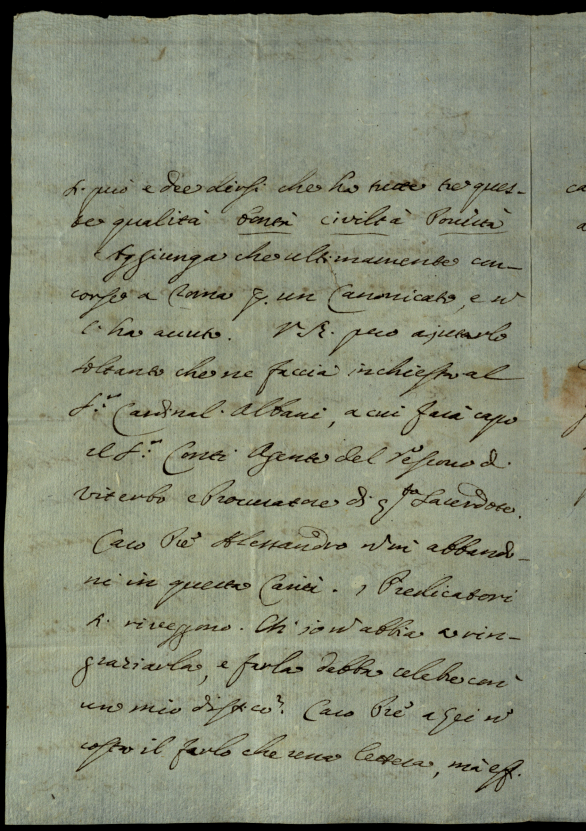 può e dee dirsi che ha tutte tre ques-
te qualità bontà civiltà Povertà
Aggiunga che ultimamente con-
corse a Roma p. un Canonicato, e n̄
l'ha avuto. V.R. può ajutarlo
soltanto che ne faccia inchiesta al
S.r Cardinal Albani, a cui farà capo
il S.r Conti Agente del Vescovo di
Viterbo e Procuratore di q.sto Sacerdote.
Caro Pre Alessandro n̄ mi abbando-
ni in questa Carità. I Predicatori
riveggono. Ch' io n̄ abbia a rin-
graziarla, e farla debba celebre con
uno mio distico? Caro Pre a Lei n̄
costa il farlo che una lettera, mà
ca
a